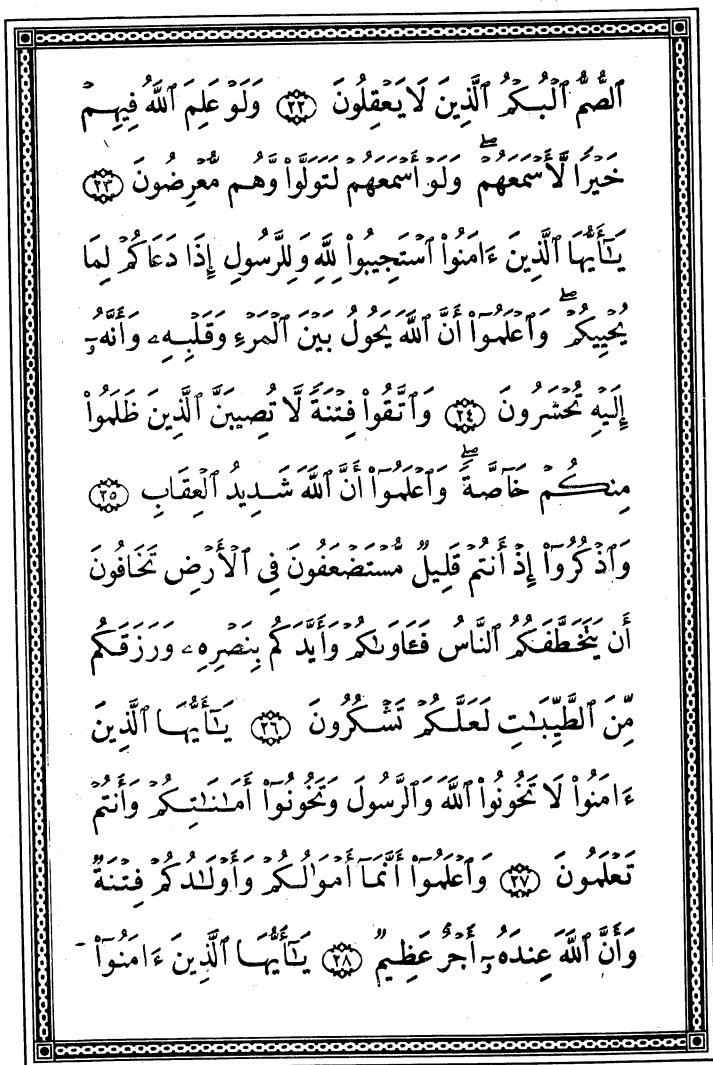 ٱلصُّمُّ ٱلْبُكْمُ ٱلَّذِينَ لَا يَعْقِلُونَ ٢٢ وَلَوْ عَلِمَ ٱللَّهُ فِيهِمْ
خَيْرًا لَّأَسْمَعَهُمْ ۖ وَلَوْ أَسْمَعَهُمْ لَتَوَلَّوا۟ وَّهُم مُّعْرِضُونَ ٢٣
يَـٰٓأَيُّهَا ٱلَّذِينَ ءَامَنُوا۟ ٱسْتَجِيبُوا۟ لِلَّهِ وَلِلرَّسُولِ إِذَا دَعَاكُمْ لِمَا
يُحْيِيكُمْ ۖ وَٱعْلَمُوٓا۟ أَنَّ ٱللَّهَ يَحُولُ بَيْنَ ٱلْمَرْءِ وَقَلْبِهِۦ وَأَنَّهُۥٓ
إِلَيْهِ تُحْشَرُونَ ٢٤ وَٱتَّقُوا۟ فِتْنَةً لَّا تُصِيبَنَّ ٱلَّذِينَ ظَلَمُوا۟
مِنكُمْ خَآصَّةً ۖ وَٱعْلَمُوٓا۟ أَنَّ ٱللَّهَ شَدِيدُ ٱلْعِقَابِ ٢٥
وَٱذْكُرُوٓا۟ إِذْ أَنتُمْ قَلِيلٌ مُّسْتَضْعَفُونَ فِى ٱلْأَرْضِ تَخَافُونَ
أَن يَتَخَطَّفَكُمُ ٱلنَّاسُ فَـَٔاوَىٰكُمْ وَأَيَّدَكُم بِنَصْرِهِۦ وَرَزَقَكُم
مِّنَ ٱلطَّيِّبَـٰتِ لَعَلَّكُمْ تَشْكُرُونَ ٢٦ يَـٰٓأَيُّهَا ٱلَّذِينَ
ءَامَنُوا۟ لَا تَخُونُوا۟ ٱللَّهَ وَٱلرَّسُولَ وَتَخُونُوٓا۟ أَمَـٰنَـٰتِكُمْ وَأَنتُمْ
تَعْلَمُونَ ٢٧ وَٱعْلَمُوٓا۟ أَنَّمَآ أَمْوَٰلُكُمْ وَأَوْلَـٰدُكُمْ فِتْنَةٌ
وَأَنَّ ٱللَّهَ عِندَهُۥٓ أَجْرٌ عَظِيمٌ ٢٨ يَـٰٓأَيُّهَا ٱلَّذِينَ ءَامَنُوٓا۟